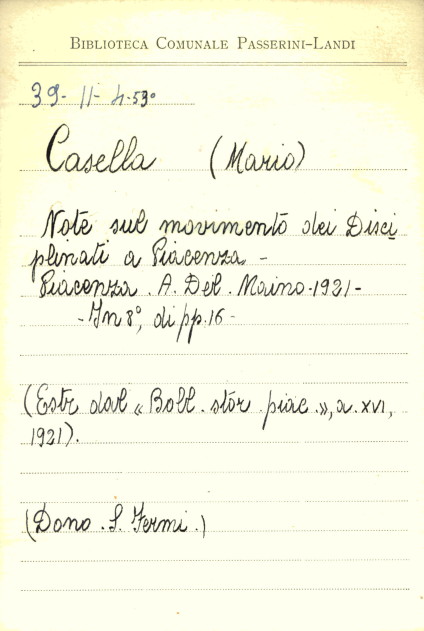 BIBLIOTECA COMUNALE PASSERINI-LANDI
39- II- 4-53°
Casella (Mario)
Note sul movimento dei Disci
plinati a Piacenza -
Piacenza . A. Del . Maino-1921-
- In 8°, di pp. 16 -
(Estr. dal « Boll. stor. piac. », a. XVI,
1921).
(Dono . S. Fermi .)